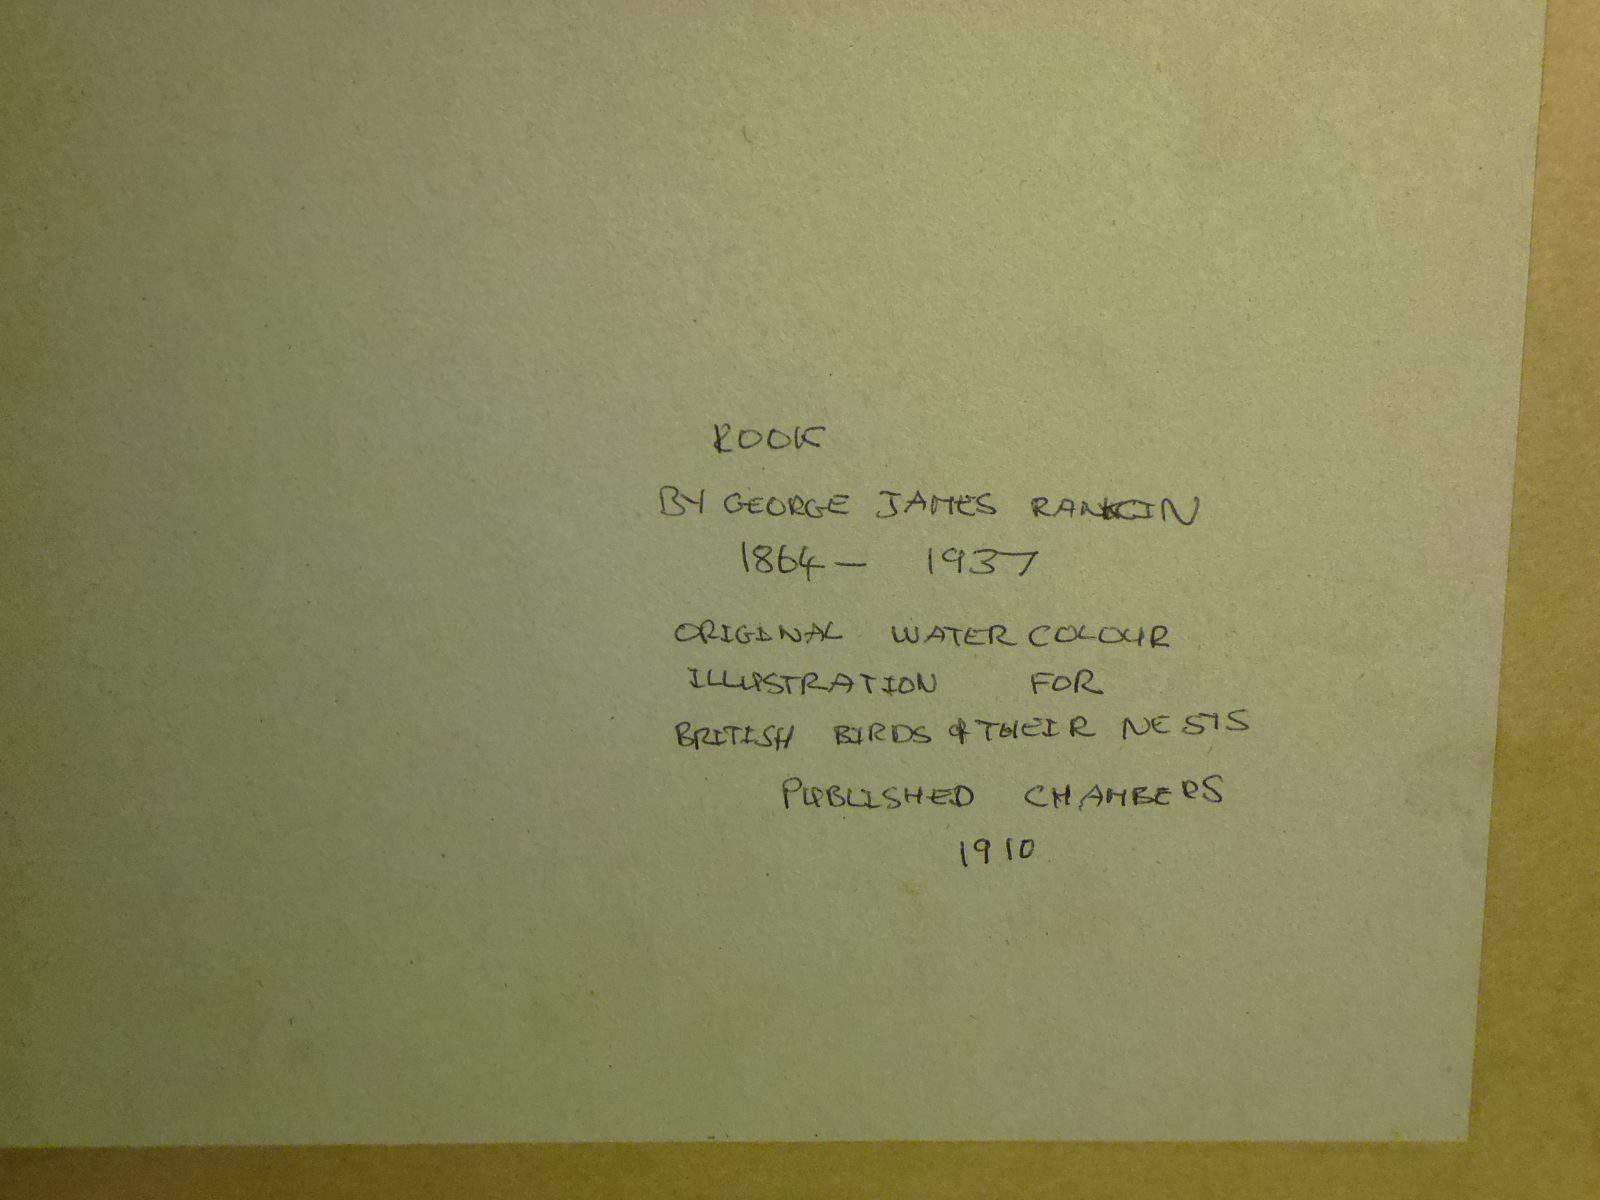 ROOK
BY GEORGE JAMES RANKIN
1864 - 1937
ORIGINAL WATER COLOUR
ILLUSTRATION FOR
BRITISH BIRDS & THEIR NESTS
PUBLISHED CHAMBERS
1910